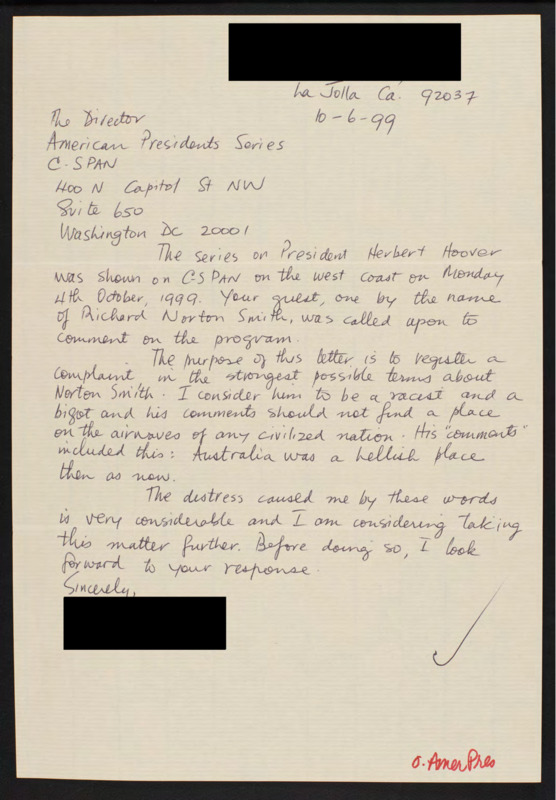 La Jolla Ca. 92037
10-6-99
The Director
American Presidents Series
C-SPAN
400 N Capitol St NW
Suite 650
Washington DC 20001
The series on President Herbert Hoover
was shown on C-SPAN on the west coast on Monday
4th October, 1999. Your guest, one by the name
of Richard Norton Smith, was called upon to
comment on the program.
The purpose of this letter is to register a
complaint in the strongest possible terms about
Norton Smith. I consider him to be a racist and a
bigot and his comments should not find a place
on the airwaves of any civilized nation. His "comments"
included this: Australia was a hellish place
then as now.
The distress caused me by these words
is very considerable and I am considering taking
this matter further. Before doing so, I look
forward to your response.
Sincerely,
O. AmerPres